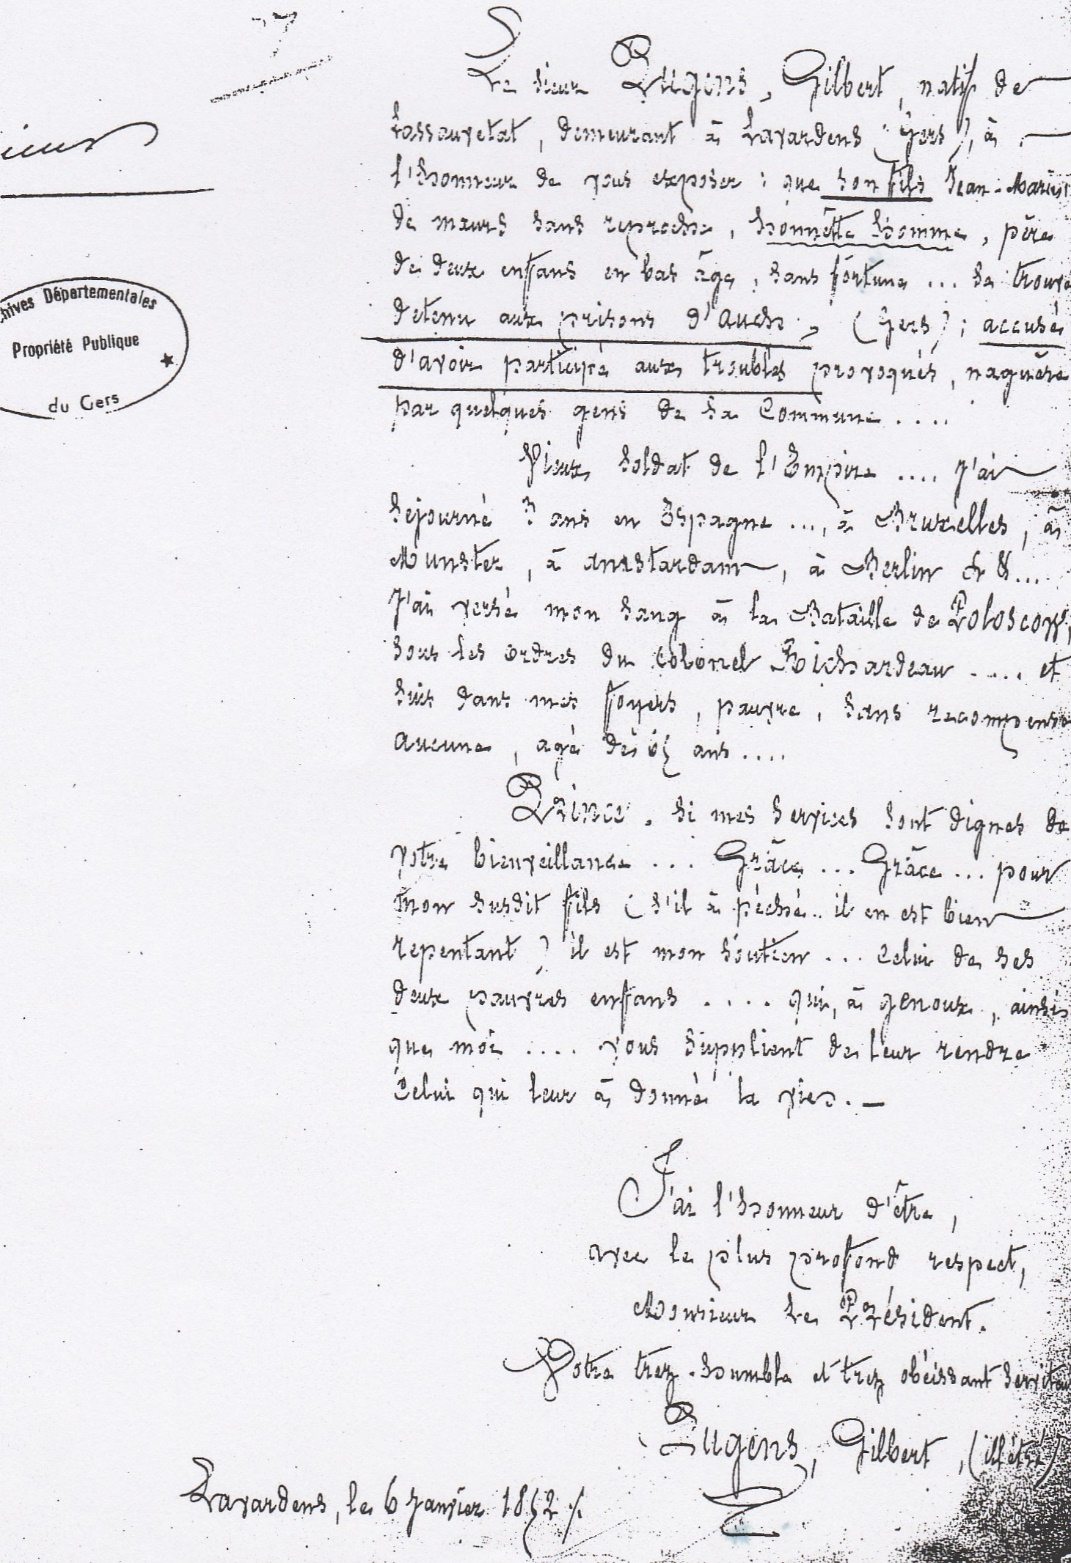 Le sieur Pugens, Gilbert, natif de
Lassauvetat, demeurant à Lavardens (Gers), à
l'honneur de vous exposer : que son fils Jean-Marie,
de mœurs sans reproche, honnête homme, père
de deux enfans en bas âge, sans fortune ... se trouve
detenu aux prisons d'Auch, (Gers); accusé
d'avoir participé aux troubles provoqués, naguère
par quelques gens de sa Commune ....
Vieux soldat de l'Empire .... J'ai
séjourné 3 ans en Espagne ..., à Bruxelles, à
Munster, à Amstardam, à Berlin &&...
J'ai versé mon sang à la Bataille de Poloscow,
sous les ordres du Colonel Richardeau .... et
suis dans mes foyers, pauvre, sans recompense
aucune, agé de 65 ans ....
Prince, si mes services sont dignes de
votre bienveillance ... Grâce ... Grâce ... pour
mon susdit fils (s'il à péché .. il en est bien
repentant) il est mon soutien ... Celui de ses
deux pauvres enfans .... qui, à genoux, ainsi
que moi .... vous supplient de leur rendre
Celui qui leur à donné la vie. —
J'ai l'honneur d'être,
avec le plus profond respect,
Monsieur Le Président.
Votre trez-humble et trez obéissant Serviteur
Pugens, Gilbert, (illétré)
Lavardens, le 6 Janvier 1852 ./.
hives Départementales
Propriété Publique
★
du Gers